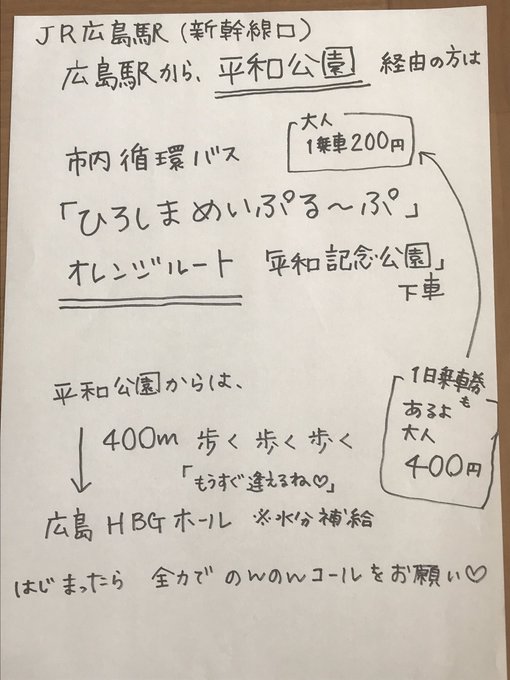 JR広島駅(新幹線口)
広島駅から、平和公園 経由の方は
大人
1乗車200円
市内循環バス
「ひろしまめいぷる〜ぷ」
オレンジルート 「平和記念公園」
下車
1日乗車券
も
あるよ
大人
400円
平和公園からは、
400m 歩く歩く歩く
「もうすぐ逢えるね♡」
広島HBGホール ※水分補給
はじまったら 全力で のんのんコールをお願い♡